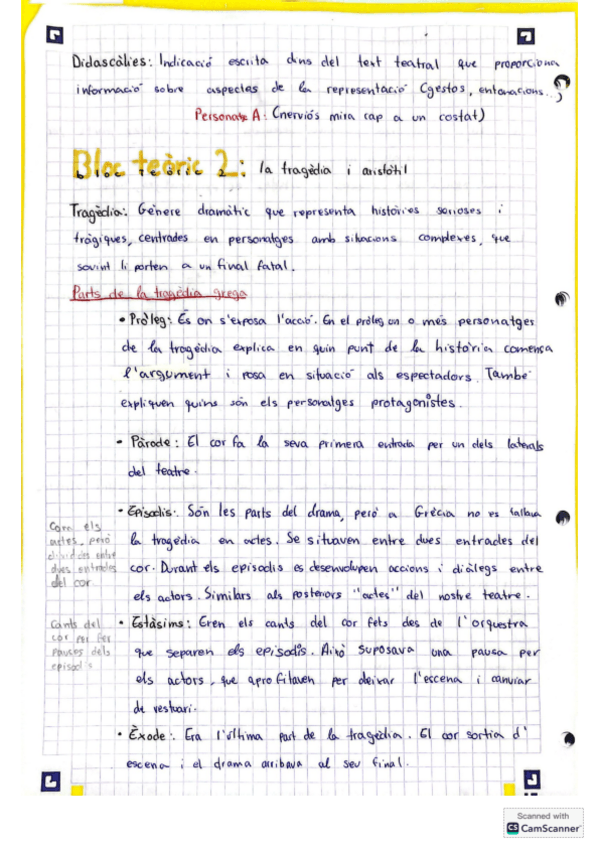 Didascàlies: Indicació escrita dins del text teatral que proporciona
informació sobre aspectes de la representació (gestos, entonacions...)
Personatge A: (nerviós mira cap a un costat)
Bloc teòric 2: la tragèdia i aristòtil
Tragèdia: Gènere dramàtic que representa histories serioses i
tràgiques, centrades en personatges amb situacions complexes, que
sovint li porten a un final fatal.
Parts de la tragèdia grega
• Pròleg: És on s'exposa l'acció. En el pròleg un o més personatges
de la tragèdia explica en quin punt de la història comença
l'argument i posa en situació als espectadors. També
expliquen quins són els personatges protagonistes.
• Pàrode: El cor fa la seva primera entrada per un dels laterals
del teatre.
• Episodis: Són les parts del drama, però a Grècia no es tallava
la tragèdia en actes. Se situaven entre dues entrades del
cor. Durant els episodis es desenvolupen accions i diàlegs entre
els actors. Similars als posteriors "actes" del nostre teatre.
Com els
actes, però
dividides entre
dues entrades
del cor.
• Estàsims: Eren els cants del cor fets des de l'orquestra
que separen els episodis. Això suposava una pausa per
els actors, que aprofitaven per deixar l'escena i canviar
de vestuari.
Cants del
cor per fer
pauses dels
episodis
• Èxode: Era l'última part de la tragèdia. El cor sortia d'
escena i el drama arribava al seu final.
Scanned with
CS CamScanner